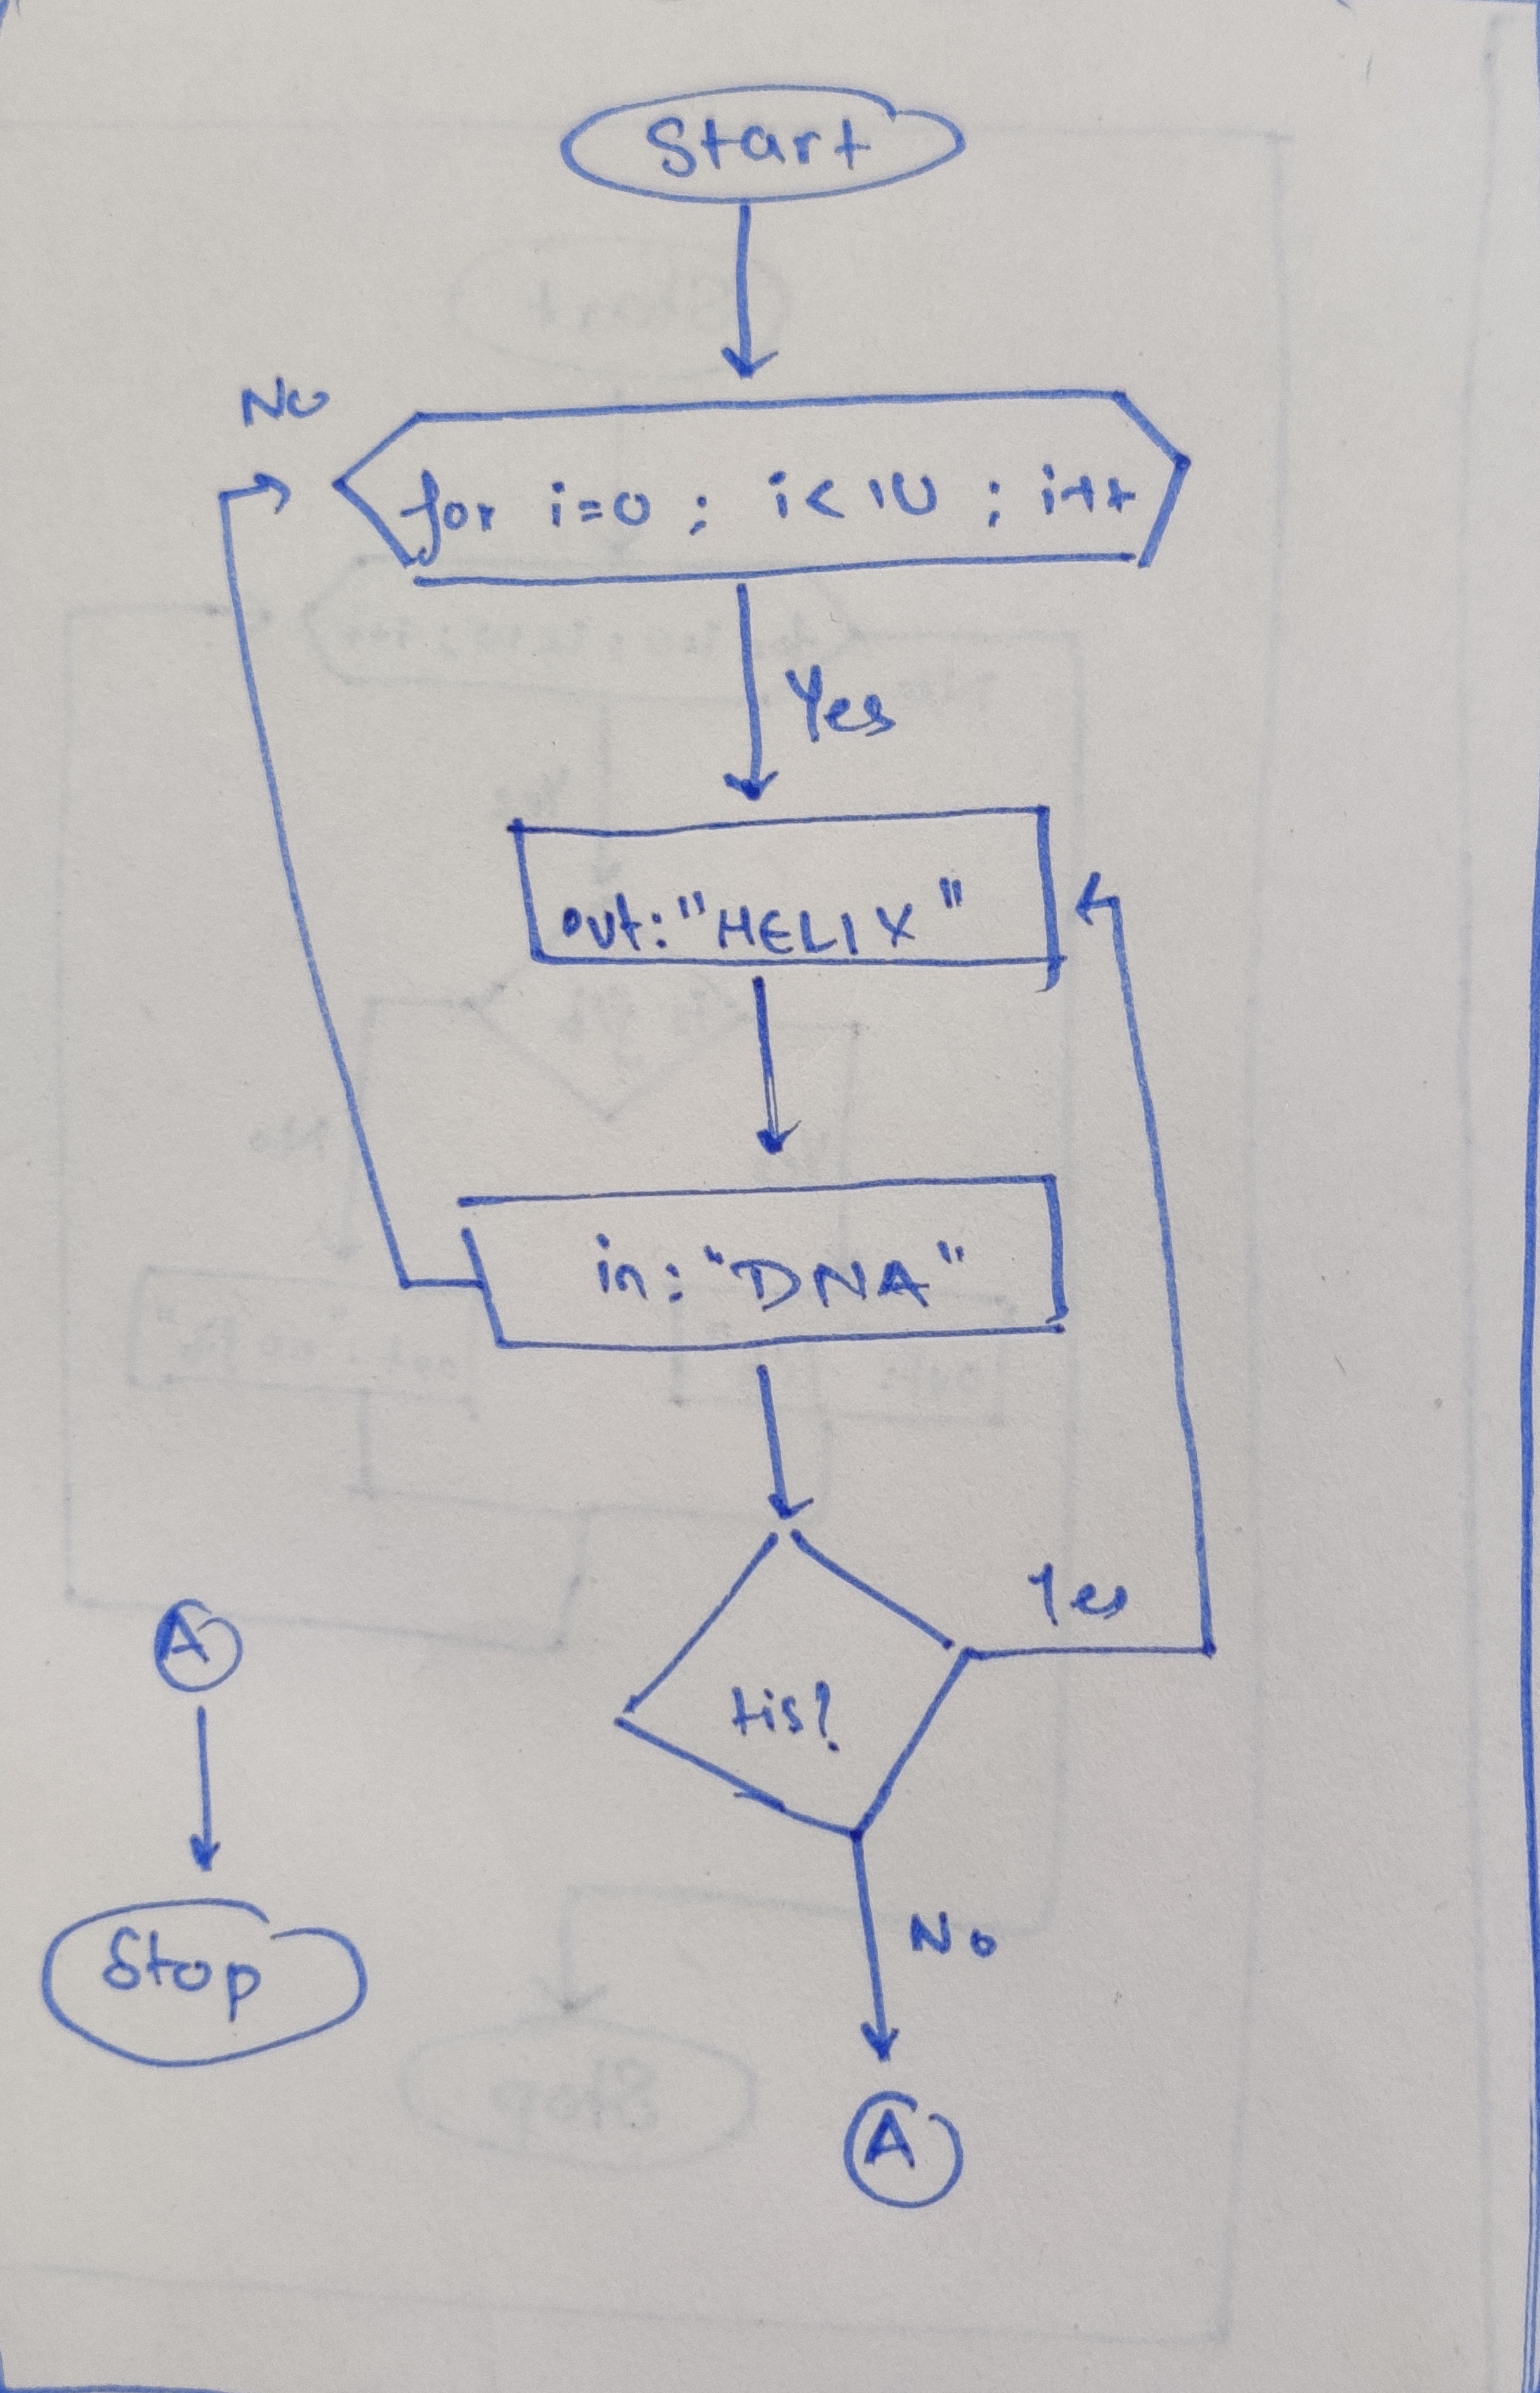 Start
No
for i=0 ; i<10 ; i++
Yes
out: "HELIX"
in: "DNA"
Yes
tis?
A
No
Stop
A